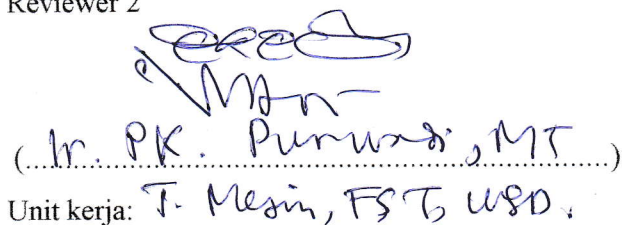 Reviewer 2
(Ir. PK. Purwadi, MT)
Unit kerja: T. Mesin, FST, USD.